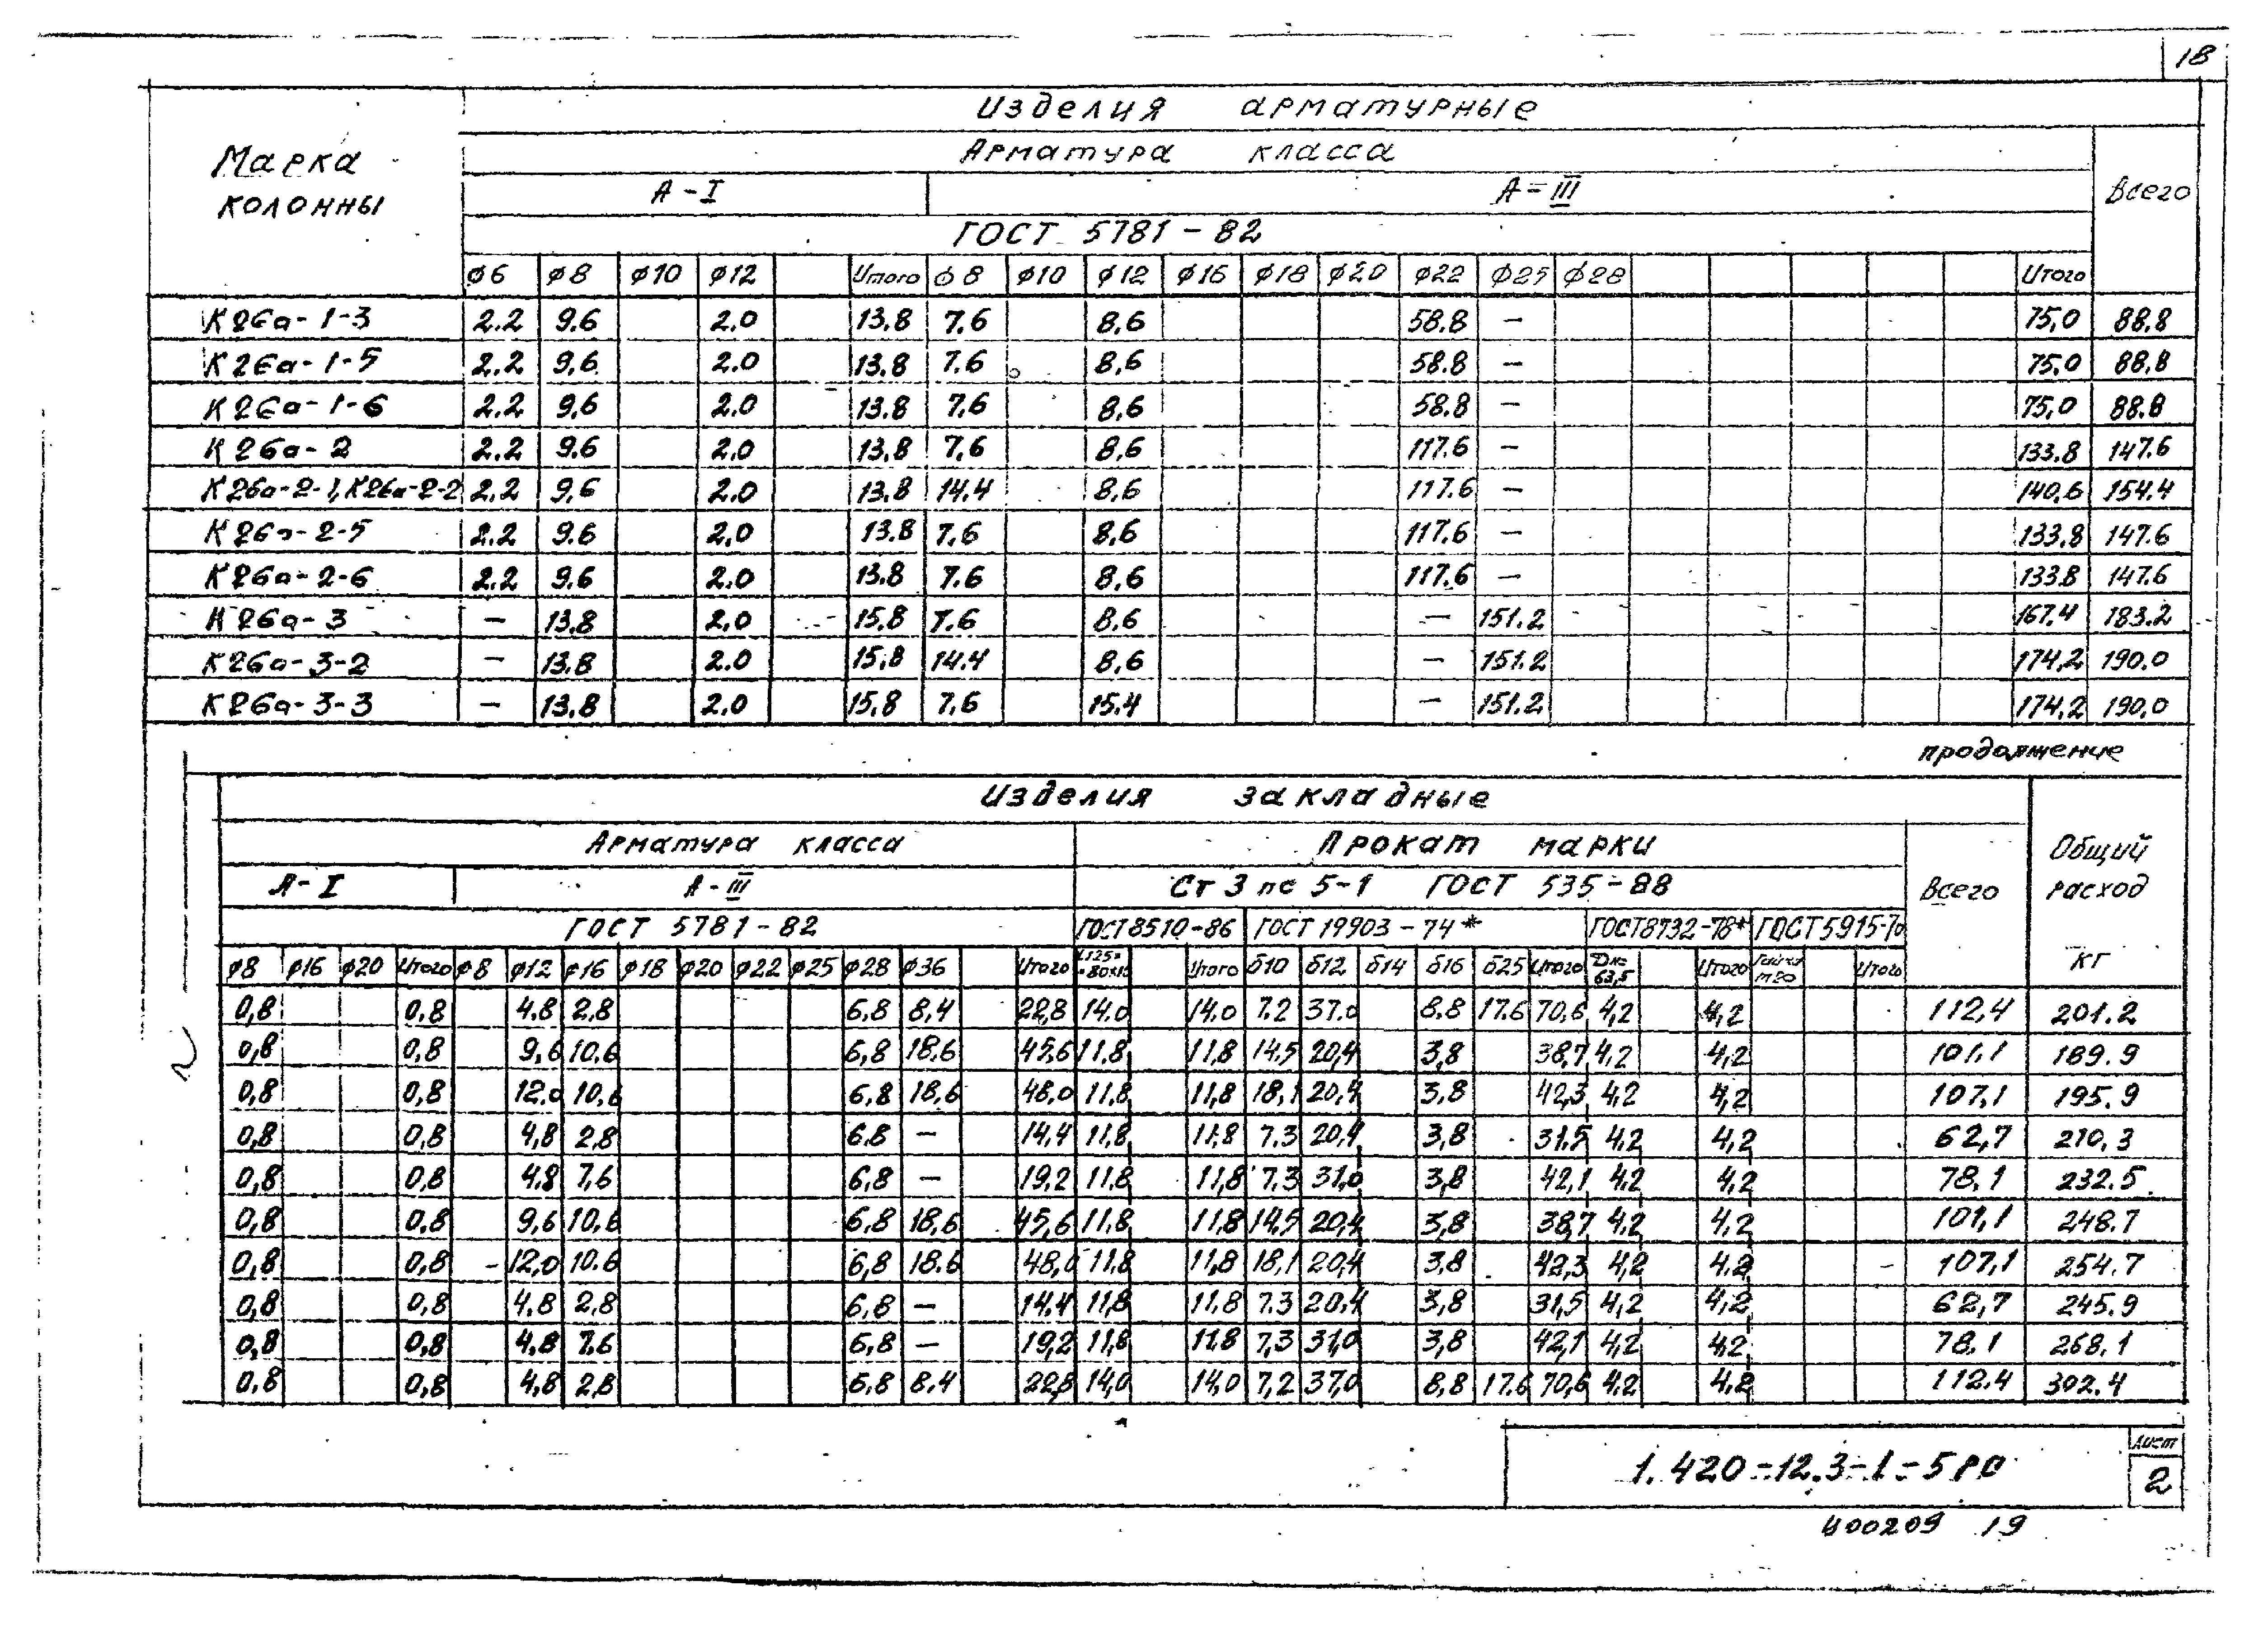 18
Изделия арматурные
Марка колонны
Арматура класса
Всего
А-I А-III
ГОСТ 5781-82
ф6 ф8 ф10 ф12 Итого ф8 ф10 ф12 ф16 ф18 ф20 ф22 ф25 ф28 Итого
К26а-1-3 2.2 9.6 2.0 13.8 7.6 8,6 58.8 — 75,0 88.8
К26а-1-5 2.2 9,6 2.0 13.8 7.6 8,6 58.8 — 75,0 88,8
К26а-1-6 2.2 9,6 2.0 13.8 7,6 8,6 58.8 — 75,0 88.8
К26а-2 2.2 9.6 2.0 13.8 7,6 8,6 117.6 — 133.8 147.6
К26а-2-1, К26а-2-2 2.2 9,6 2.0 13.8 14.4 8,6 117.6 — 140,6 154.4
К26а-2-5 2.2 9.6 2.0 13.8 7,6 8,6 117.6 — 133,8 147.6
К26а-2-6 2.2 9.6 2.0 13.8 7.6 8,6 117.6 — 133.8 147.6
К26а-3 — 13.8 2.0 15.8 7.6 8.6 — 151.2 167.4 183.2
К26а-3-2 — 13.8 2.0 15.8 14.4 8,6 — 151.2 174,2 190.0
К26а-3-3 — 13.8 2.0 15.8 7.6 15.4 — 151.2 174,2 190,0
продолжение
Изделия закладные
Арматура класса Прокат марки
Общий расход кг
А-I А-III Ст 3 пс 5-1 ГОСТ 535-88 Всего
ГОСТ 5781-82 ГОСТ 8510-86 ГОСТ 19903-74* ГОСТ 8732-78* ГОСТ 5915-70
ф8 ф16 ф20 Итого ф8 ф12 ф16 ф18 ф20 ф22 ф25 ф28 ф36 Итого L125× ×80×10 Итого δ10 δ12 δ14 δ16 δ25 Итого Дн= 63,5 Итого Гайка М20 Итого
0,8 0.8 4.8 2.8 6,8 8,4 22,8 14.0 14.0 7.2 37.0 8.8 17.6 70,6 4,2 4,2 112,4 201.2
0,8 0,8 9,6 10.6 6,8 18,6 45,6 11,8 11,8 14,5 20,4 3,8 38,7 4,2 4,2 101,1 189.9
0,8 0,8 12.0 10,6 6,8 18,6 48,0 11,8 11,8 18,1 20,4 3,8 42,3 4,2 4,2 107,1 195.9
0,8 0,8 4,8 2,8 6.8 — 14,4 11,8 11,8 7.3 20,4 3,8 31,5 4,2 4,2 62,7 210,3
0,8 0,8 4.8 7,6 6,8 — 19,2 11.8 11,8 7,3 31,0 3,8 42,1 4,2 4,2 78,1 232.5
0,8 0.8 9,6 10,6 6,8 18,6 45,6 11,8 11,8 14,5 20,4 3,8 38,7 4,2 4,2 101,1 248.7
0,8 0,8 12,0 10.6 6,8 18.6 48,0 11,8 11,8 18,1 20,4 3,8 42,3 4,2 4,2 107,1 254.7
0,8 0,8 4,8 2,8 6,8 — 14,4 11,8 11,8 7.3 20,4 3,8 31,5 4,2 4,2 62,7 245.9
0,8 0,8 4,8 7.6 6,8 — 19,2 11,8 11.8 7,3 31,0 3,8 42,1 4,2 4,2 78.1 268.1
0,8 0,8 4,8 2,8 6,8 8.4 22,8 14,0 14,0 7,2 37,0 8,8 17.6 70,6 4,2 4,2 112.4 302.4
1.420-12.3-1-5РС
Лист
2
400209 19